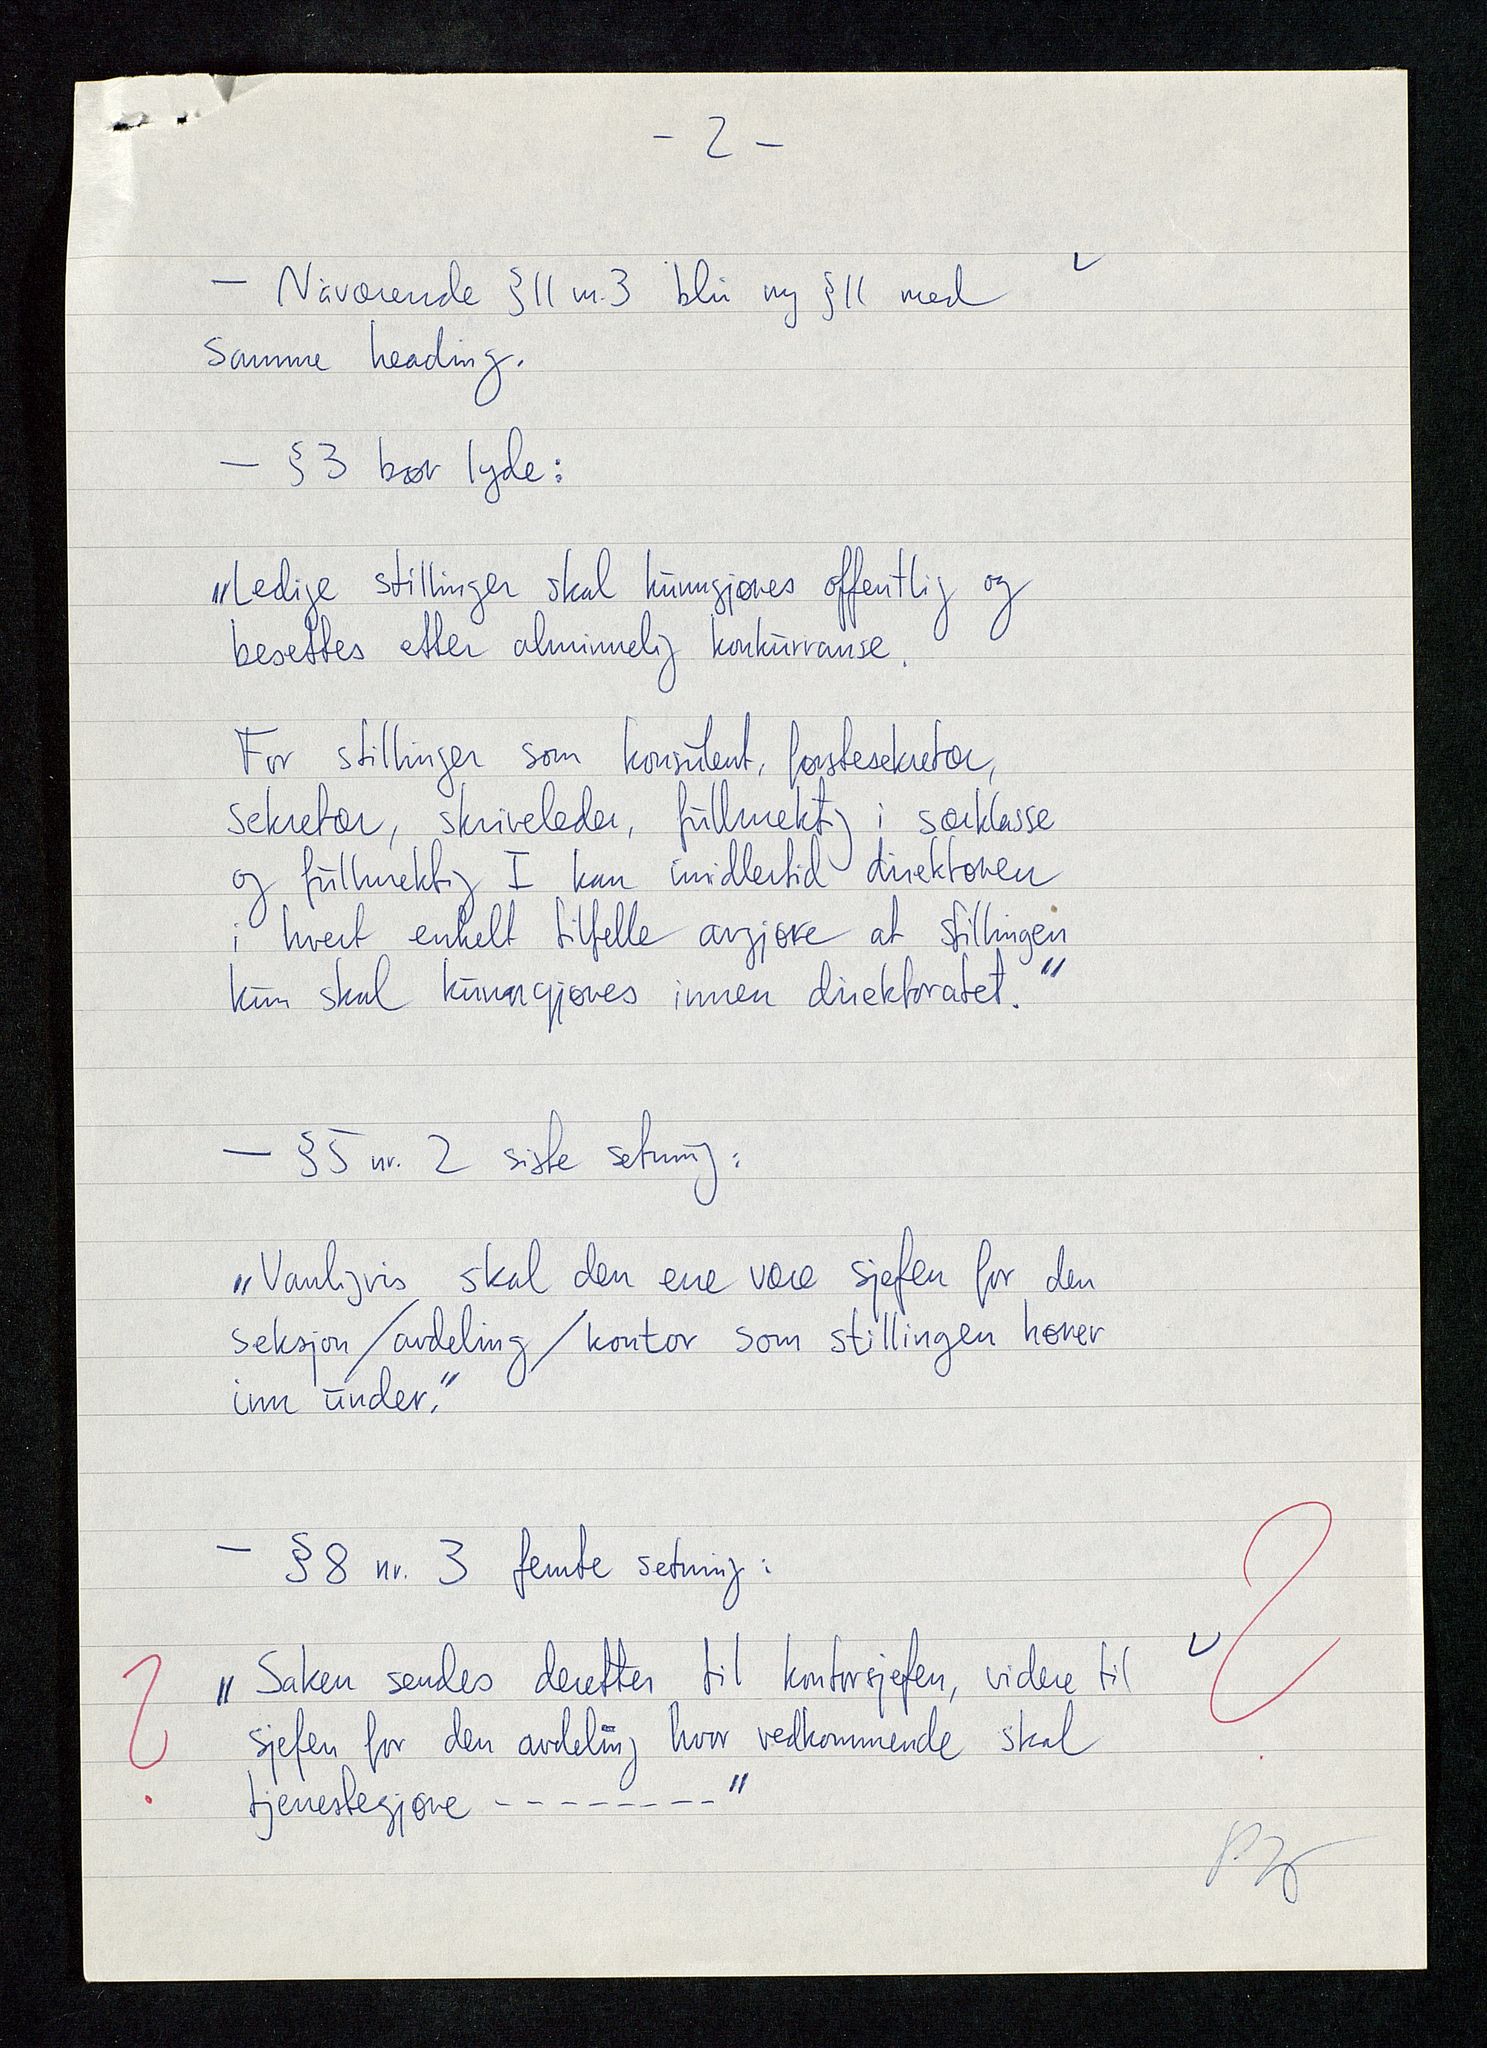 - 2 -
- Nåværende § 11 nr. 3 blir ny § 11 med
samme heading.
- § 3 bør lyde:
"Ledige stillinger skal kunngjøres offentlig og
besettes etter alminnelig konkurranse.
For stillinger som konsulent, førstesekretær,
sekretær, skriveleder, fullmektig i særklasse
og fullmektig I kan imidlertid direktøren
i hvert enkelt tilfelle avgjøre at stillingen
kun skal kunngjøres innen direktoratet."
- § 5 nr. 2 siste setning:
"Vanligvis skal den ene være sjefen for den
seksjon/avdeling/kontor som stillingen hører
inn under."
- § 8 nr. 3 femte setning:
"Saken sendes deretter til kontorsjefen, videre til
sjefen for den avdeling hvor vedkommende skal
tjenestegjøre --------"
? ?